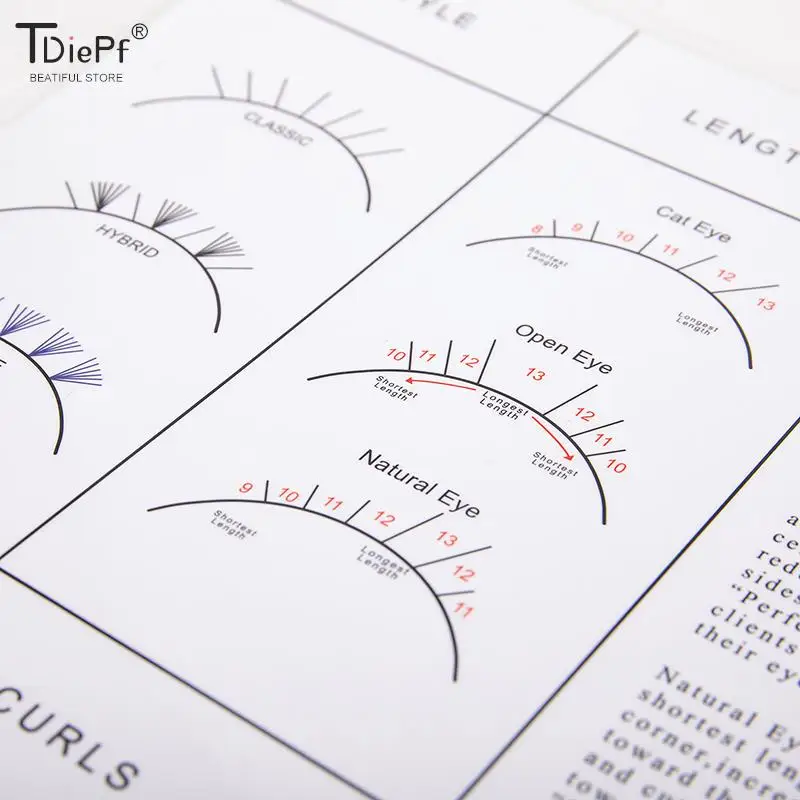 TDiePf®
BEATIFUL STORE
CLASSIC
HYBRID
Cat Eye
8 9 10 11 12 13
Shortest
Length
Longest
Length
Open Eye
10 11 12 13 12 11 10
Shortest
Length
Longest
Length
Shortest
Length
Natural Eye
9 10 11 12 13 12 11
Shortest
Length
Longest
Length
CURLS
sides
clients
their
Natural
shortest
corner,
toward the
and